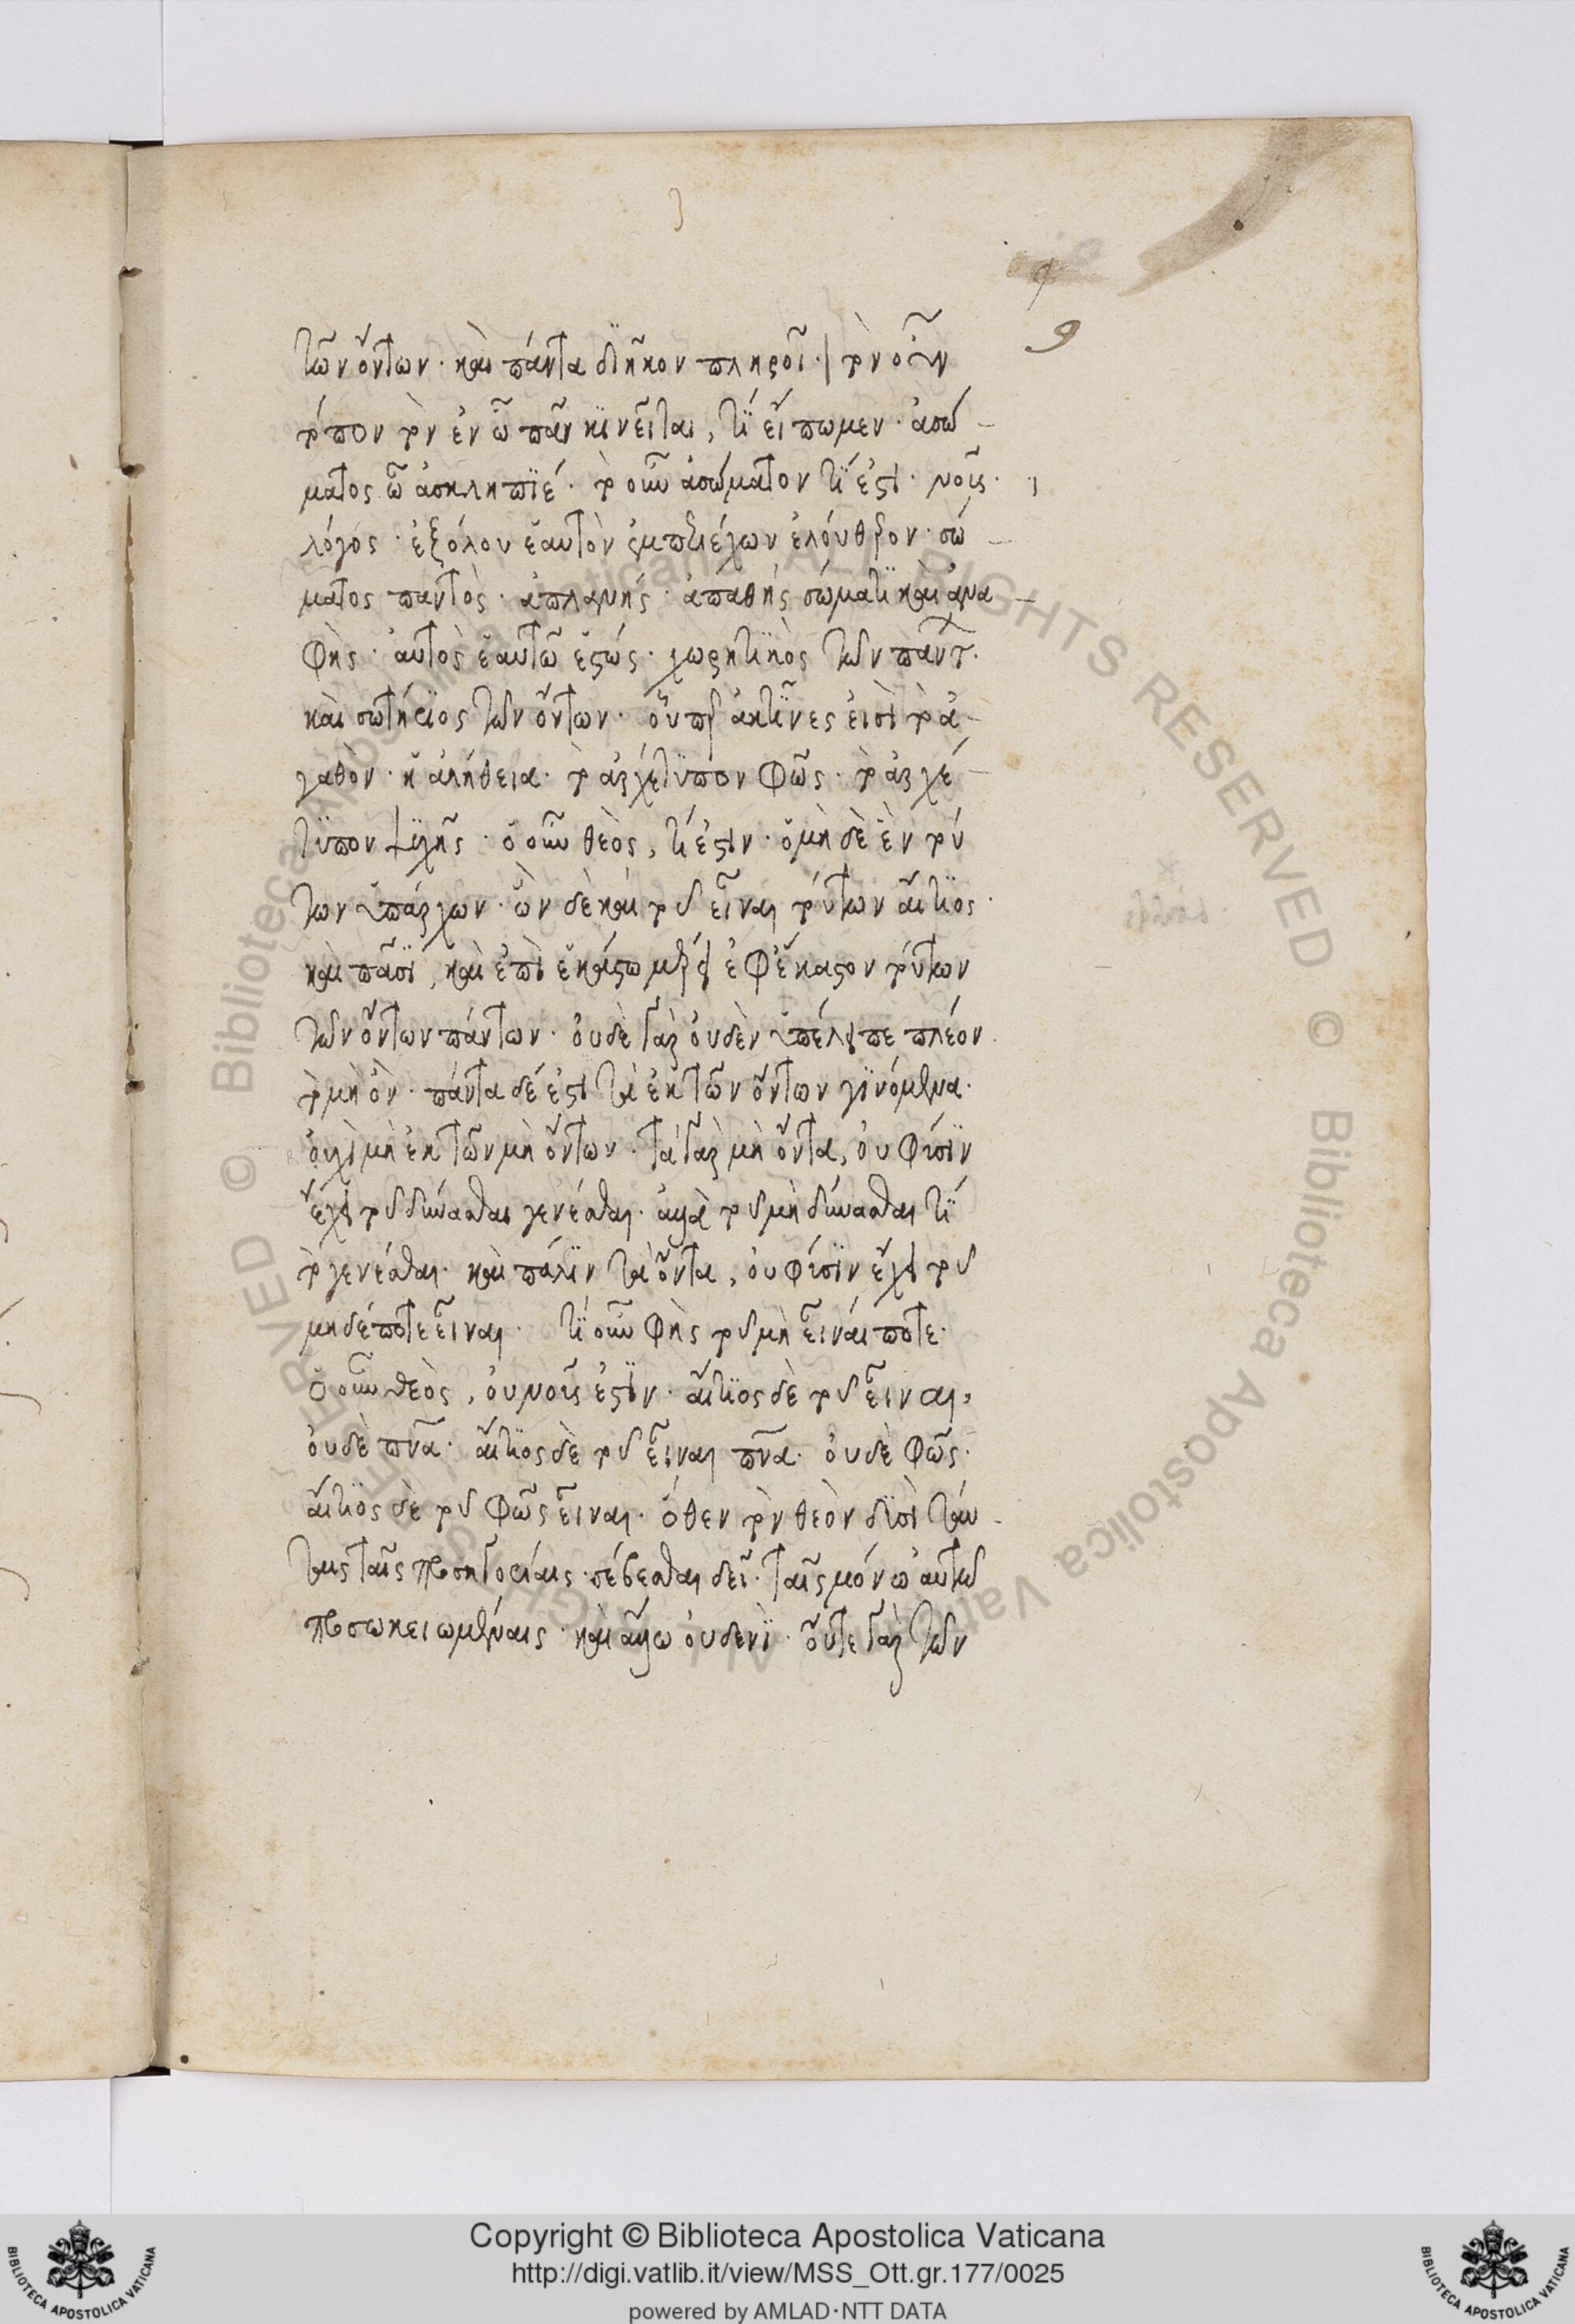 9
τῶν ὄντων· καὶ πάντα διῆκον πληροῖ· | τὸν οὖν
τόπον τὸν ἐν ὧ πᾶν κϊνεῖται, τί εἴπωμεν· ἀσώ-
ματος ὦ ἀσκληπϊέ· τὸ οὖν ἀσώματον τί ἐστι· νοῦς·
λόγος· ἐξόλου ἑαυτὸν ἐμπεριέχων ἐλεύθερον· σώ-
ματος παντὸς· ἀπλανής· ἀπαθής σώματϊ καὶ ἀνα-
φὴς· ἀυτὸς ἑαυτῶ ἑστώς· χωρητϊκὸς τῶν πάντ.
καὶ σωτήριος τῶν ὄντων· οὗπερ ἀκτῖνες ἐισὶ τὸ ἀ-
γαθὸν· ἡ ἀλήθεια· τὸ ἀρχέτϋπον φῶς· τὸ ἀρχέ-
τϋπον ψϋχῆς· ὁ οὖν θεὸς, τί ἐστιν· ὁ μὴ δὲ ἓν τού
των ὑπάρχων· ὢν δὲ καὶ τοῦ εἶναι τούτων αἴτϊος·
καὶ πᾶσϊ, καὶ ἐπὶ ἑκάστω μέρει ἐφ' ἕκαστον τούτων
τῶν ὄντων πάντων· ὀυδὲ γὰρ ὀυδὲν ὑπέλειπε πλέον·
τὸ μὴ ὂν· πάντα δέ ἐστι τὰ ἐκ τῶν ὄντων γϊνόμενα·
ὀυχὶ μὴ ἐκ τῶν μὴ ὄντων· τὰ γὰρ μὴ ὄντα, ὀυ φύσϊν
ἔχει τοῦ δύνασθαι γενέσθαι· ἀλλὰ τοῦ μὴ δύνασθαι τϊ
τὸ γενέσθαι· καὶ πάλϊν τὰ ὄντα, ὀυ φύσϊν ἔχει τοῦ
μηδέποτε εἶναι· τί οὖν φὴς τοῦ μὴ εἶναί ποτε·
ὁ οὖν θεὸς, ὀυ νοῦς ἐστϊν· αἴτϊος δὲ τοῦ εἶναι,
ὀυδὲ πνα· αἴτϊος δὲ τοῦ εἶναι πνα· ὀυδὲ φῶς·
αἴτϊος δὲ τοῦ φῶς εἶναι· ὅθεν τὸν θεὸν δϋσὶ ταύ-
ταις ταῖς προσηγορίαις σέβεσθαι δεῖ· ταῖς μόνω ἀυτῶ
προσωκειωμέναις· καὶ ἄλλω ὀυδενϊ· οὔτε γὰρ τῶν
© Biblioteca Apostolica Vaticana ALL RIGHTS RESERVED © Biblioteca Apostolica Vaticana ALL RIGHTS RESERVED
Copyright © Biblioteca Apostolica Vaticana
http://digi.vatlib.it/view/MSS_Ott.gr.177/0025
powered by AMLAD·NTT DATA
BIBLIOTECA APOSTOLICA VATICANA
BIBLIOTECA APOSTOLICA VATICANA